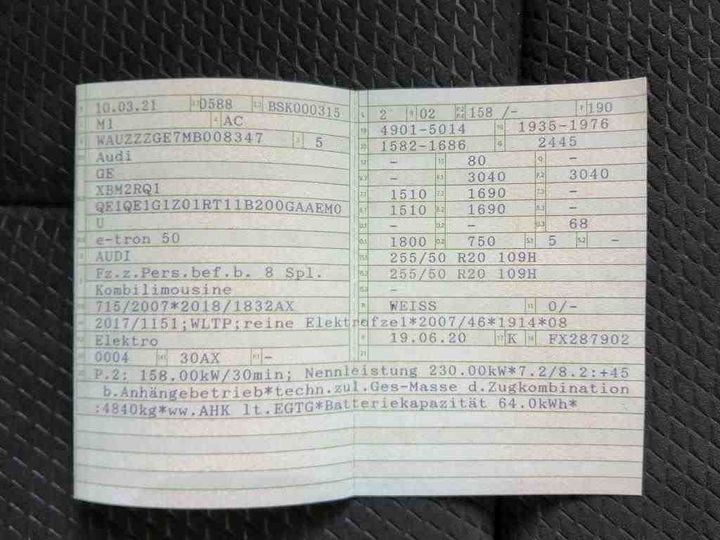 10.03.21 0588 BSK000315
M1 AC
WAUZZZGE7MB008347 5
Audi
GE
XBM2RQ1
QE1QE1G1Z01RT11B200GAAEM0
U
e-tron 50
AUDI
Fz.z.Pers.bef.b. 8 Spl.
Kombilimousine
715/2007*2018/1832AX
2017/1151;WLTP;reine Elektrofze1*2007/46*1914*08
Elektro
0004 30AX -
2 02 158 /- 190
4901-5014 1935-1976
1582-1686 2445
- 80 -
- 3040 3040
1510 1690 -
1510 1690 -
- - 68
1800 750 5 -
255/50 R20 109H
255/50 R20 109H
-
WEISS 0/-
19.06.20 K FX287902
P.2: 158.00kW/30min; Nennleistung 230.00kW*7.2/8.2:+45
b.Anhängebetrieb*techn.zul.Ges-Masse d.Zugkombination
:4840kg*ww.AHK lt.EGTG*Batteriekapazität 64.0kWh*